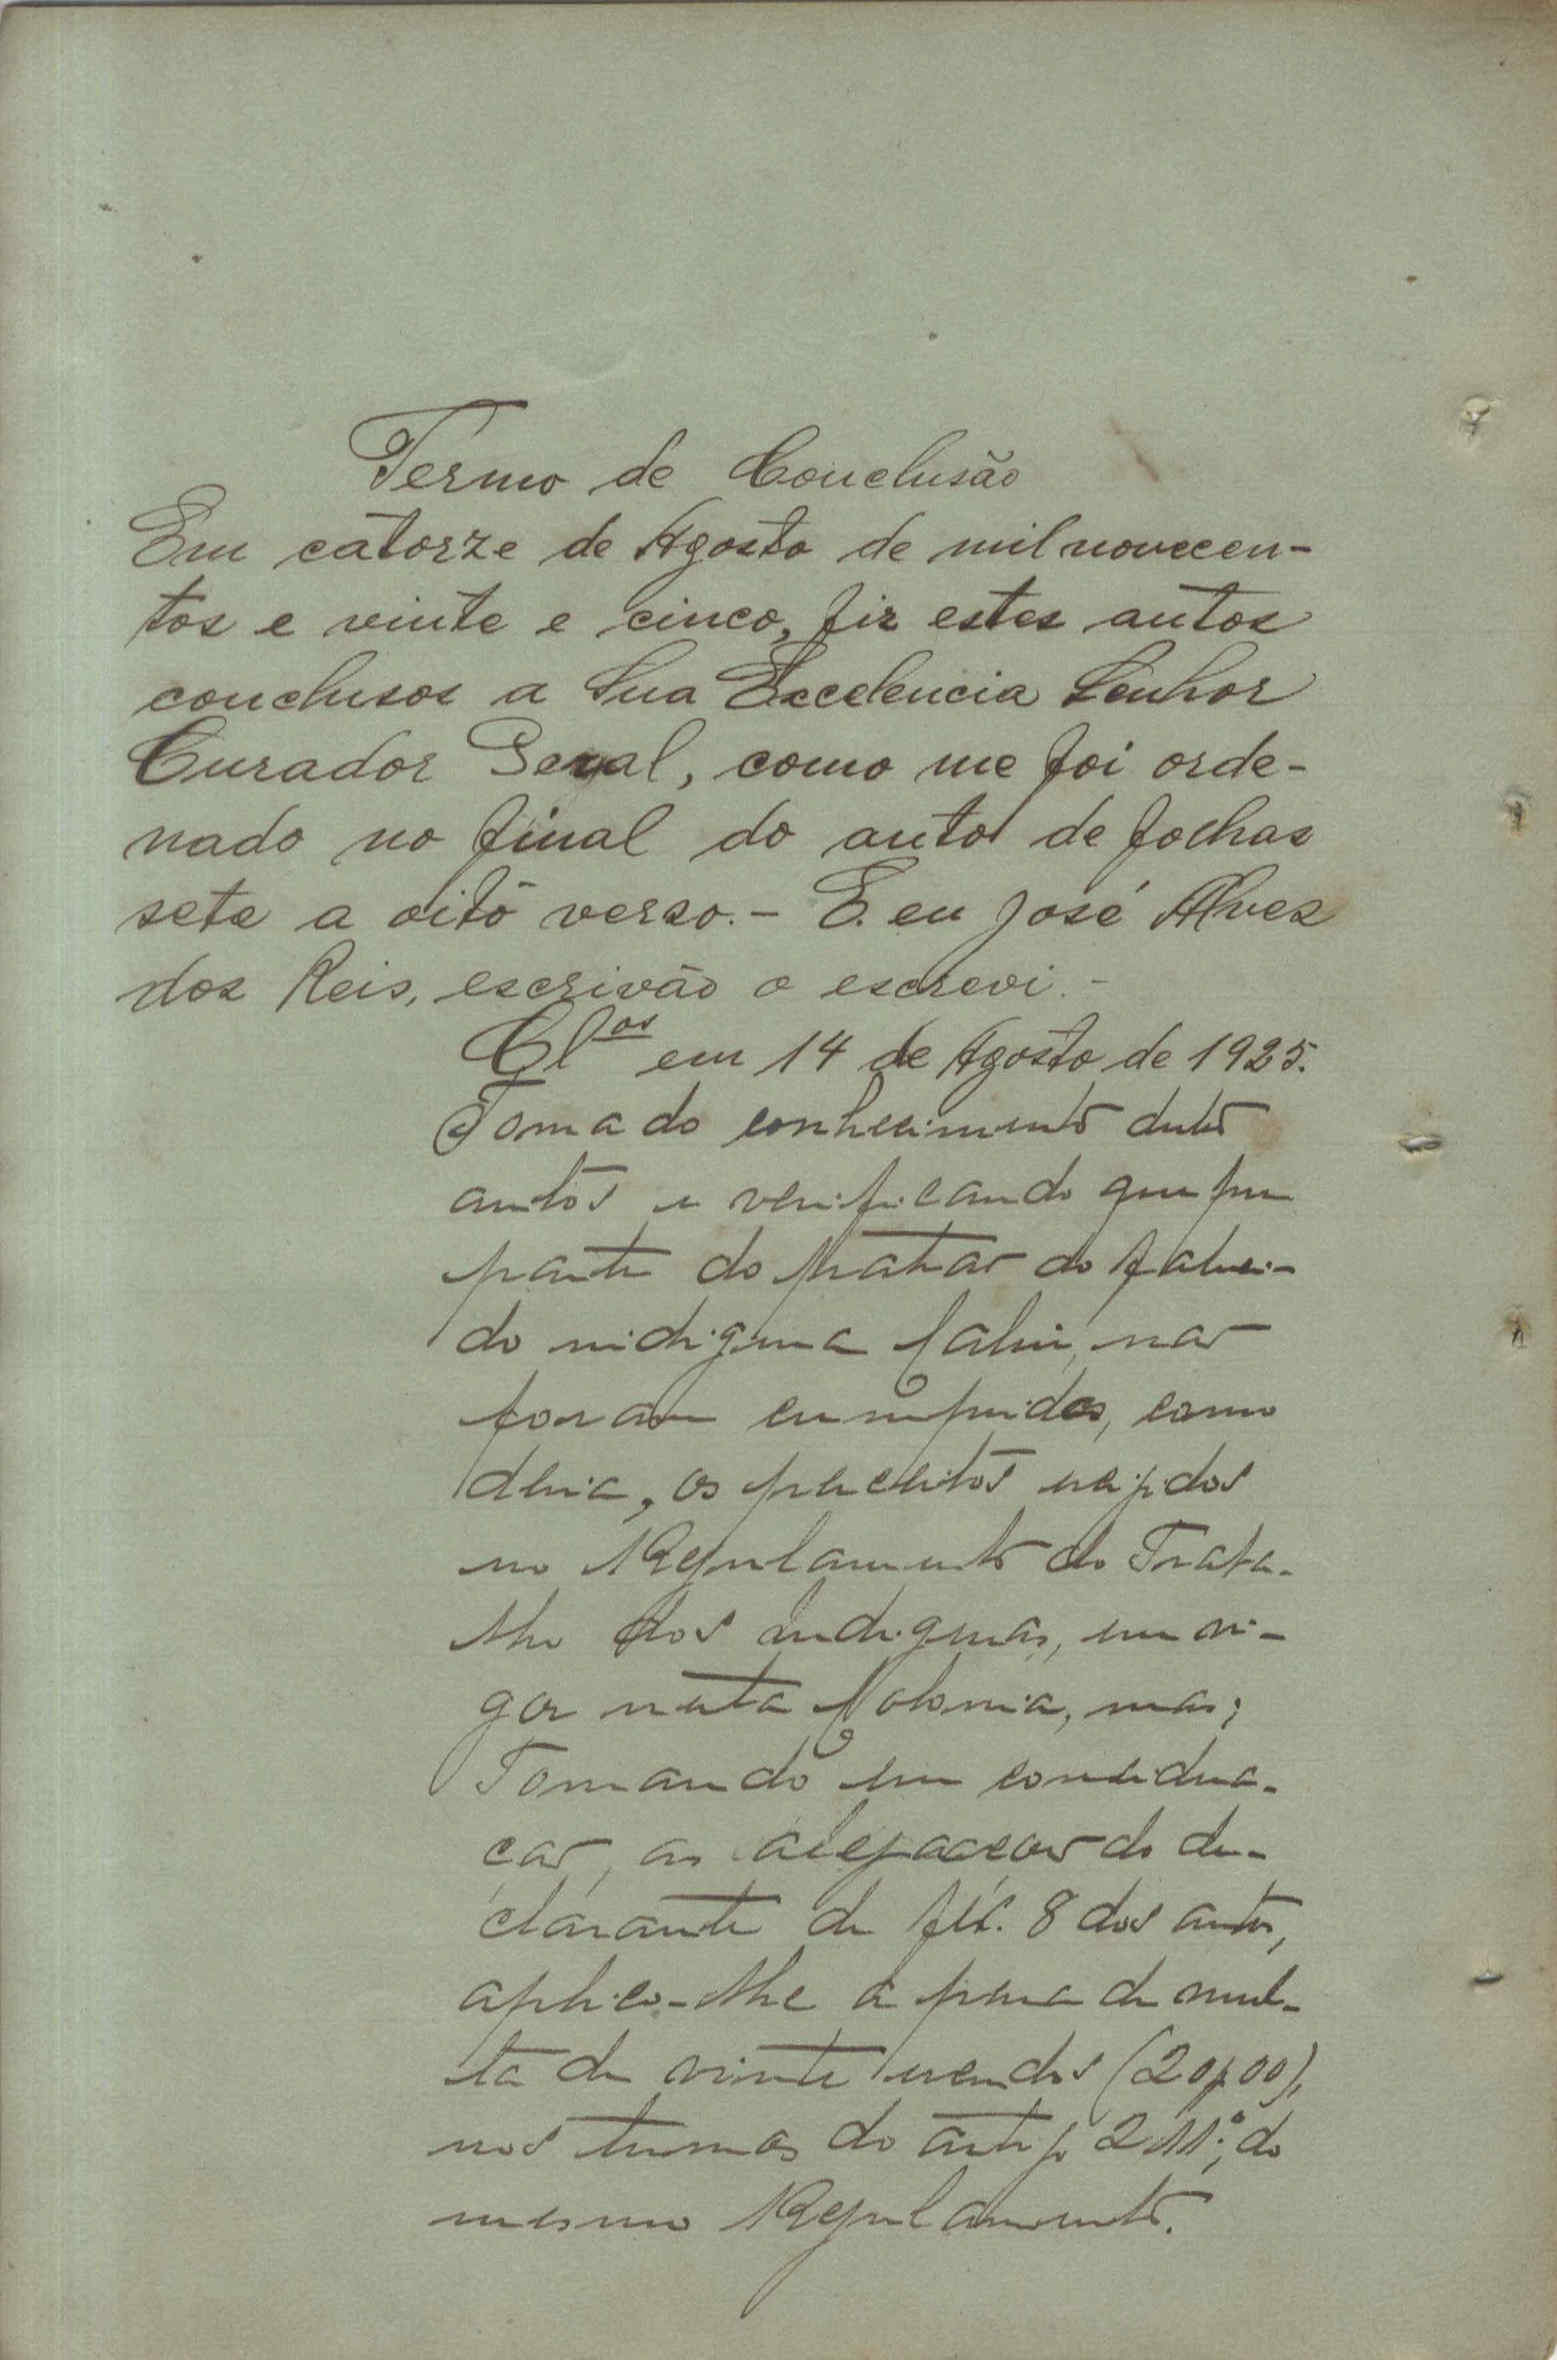 Termo de Conclusão
Em catorze de Agosto de mil novecen-
tos e vinte e cinco, fiz estes autos
conclusos a Sua Excelencia Senhor
Curador Geral, como me foi orde-
nado no final do auto de folhas
sete a oito verso. - E. eu José Alves
dos Reis, escrivão o escrevi. -
Cl.os em 14 de Agosto de 1925.
Tomado conhecimento destes
autos e verificando que por
parte do patrão do faleci-
do indigena não
foram cumpridos, como
devia, os preceitos exigidos
no Regulamento do Traba-
lho dos indigenas, em vi-
gor nesta Colonia, mas;
Tomando em considera-
ção, as alegações do de-
clarante de fls. 8 dos autos,
aplico-lhe a pena de mul-
ta de vinte escudos (20$00),
nos termos do artigo 211º, do
mesmo Regulamento.